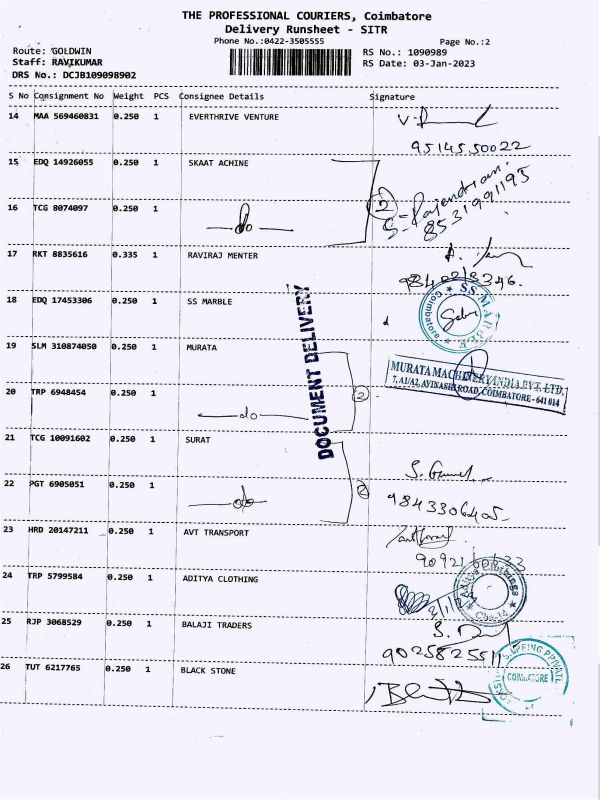 THE PROFESSIONAL COURIERS, Coimbatore
Delivery Runsheet - SITR
Phone No.:0422-3505555 Page No.:2
Route: GOLDWIN RS No.: 1090989
Staff: RAVIKUMAR RS Date: 03-Jan-2023
DRS No.: DCJB109098902
S No Consignment No Weight PCS Consignee Details Signature
14 MAA 569460831 0.250 1 EVERTHRIVE VENTURE
9514550022
15 EDQ 14926055 0.250 1 SKAAT ACHINE
16 TCG 8074097 0.250 1 do 2 S-Rajendran.
8531991193
17 RKT 8835616 0.335 1 RAVIRAJ MENTER
18 EDQ 17453306 0.250 1 SS MARBLE
SS MARBLE Coimbatore
DOCUMENT DELIVERY
19 SLM 310874050 0.250 1 MURATA
MURATA MACHINERY INDIA PVT. LTD.
7, A1/A2, AVINASHI ROAD, COIMBATORE - 641 014
20 TRP 6948454 0.250 1 do 2
21 TCG 10091602 0.250 1 SURAT
22 PGT 6905051 0.250 1 do 2
9843306405
23 HRD 20147211 0.250 1 AVT TRANSPORT
24 TRP 5799584 0.250 1 ADITYA CLOTHING
Aditya Clothings
25 RJP 3068529 0.250 1 BALAJI TRADERS
9025825511
26 TUT 6217765 0.250 1 BLACK STONE
COIMBATORE